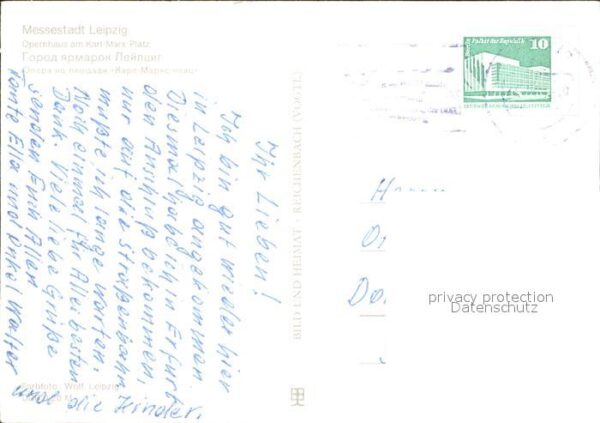 Messestadt Leipzig
Opernhaus am Karl-Marx-Platz
Город ярмарок Лейпциг
Опера на площади «Карл-Маркс-плац»
Palast der Republik
10
Ihr Lieben!
Ich bin gut wieder hier
in Leipzig angekommen
Diesmal habe ich in Erfurt
den Anschluß bekommen,
nur auf die Straßenbahn
mußte ich lange warten.
Noch einmal für Alles besten
Dank. Viele liebe Grüße
senden Euch Allen
Tante Ella und Onkel Walter
und die Kinder.
BILD UND HEIMAT · REICHENBACH (VOGTL)
Farbfoto: Wolf, Leipzig
privacy protection
Datenschutz